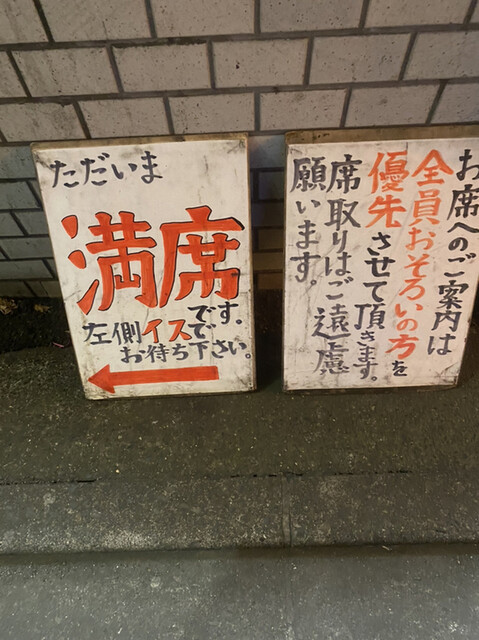 ただいま
満席
です。
左側イスで
お待ち下さい。
お席へのご案内は
全員おそろいの方を
優先させて頂きます。
席取りはご遠慮
願います。